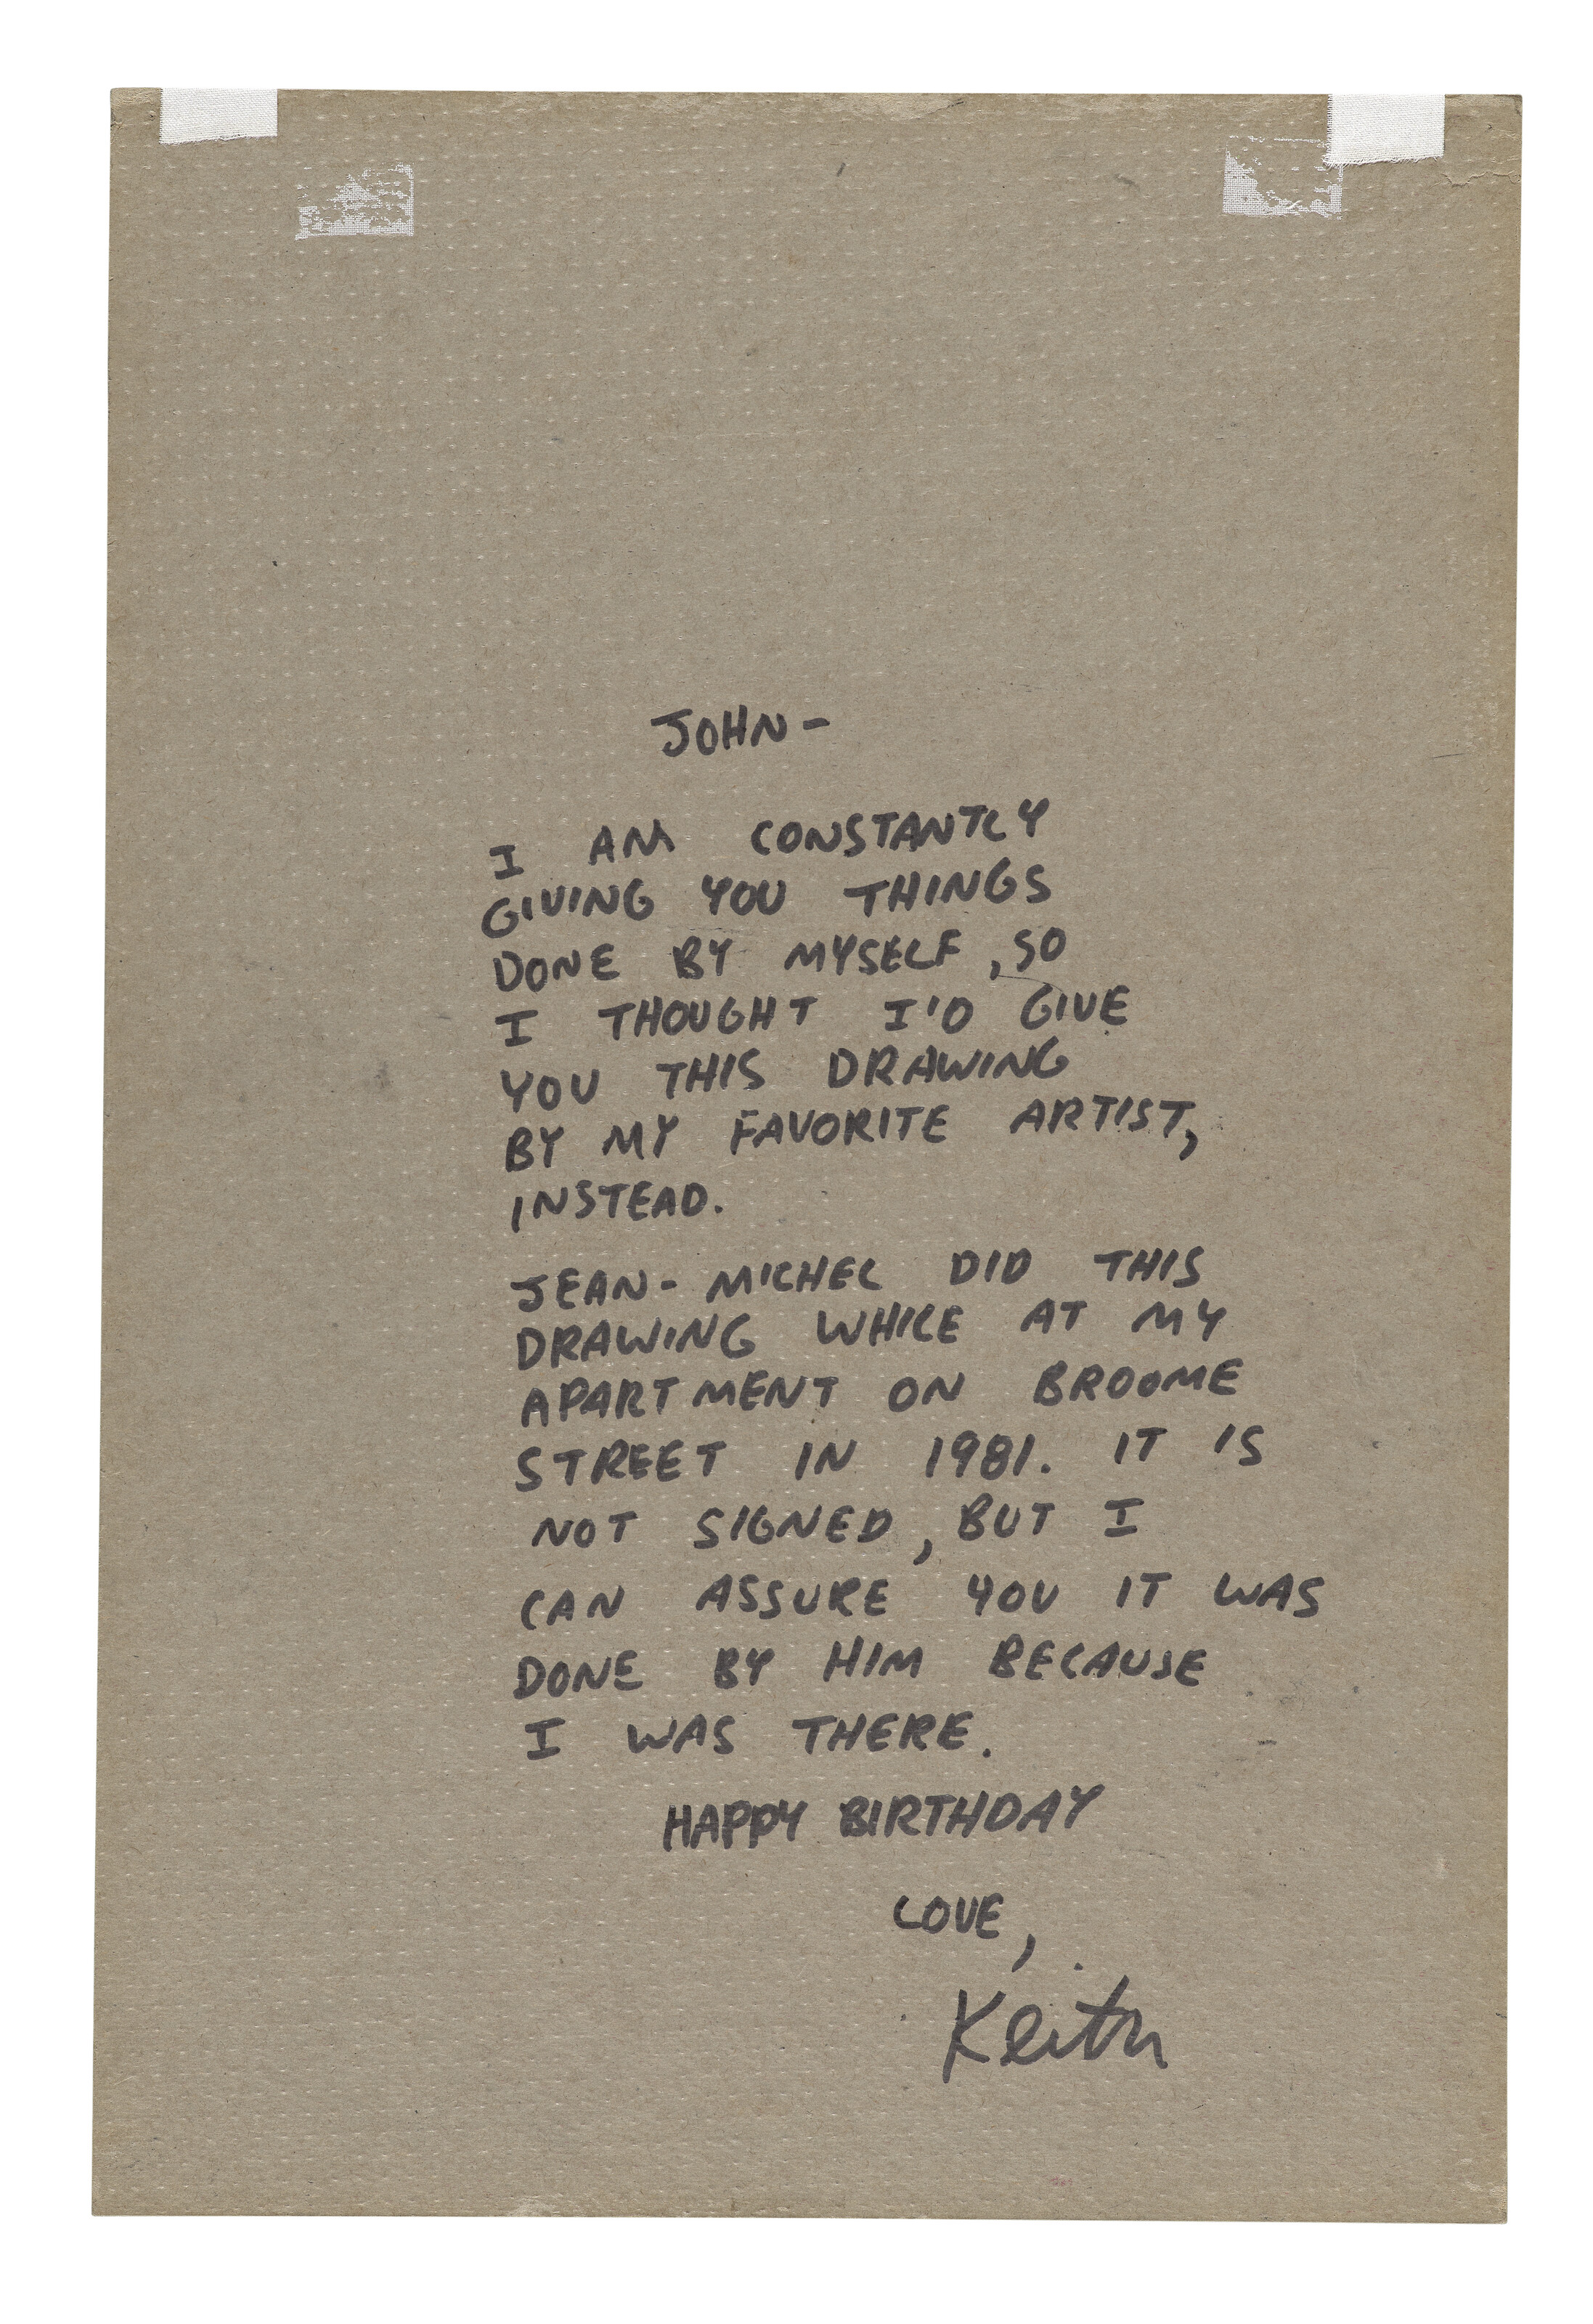 JOHN-
I AM CONSTANTLY
GIVING YOU THINGS
DONE BY MYSELF, SO
I THOUGHT I'D GIVE
YOU THIS DRAWING
BY MY FAVORITE ARTIST,
INSTEAD.
JEAN-MICHEL DID THIS
DRAWING WHILE AT MY
APARTMENT ON BROOME
STREET IN 1981. IT IS
NOT SIGNED, BUT I
CAN ASSURE YOU IT WAS
DONE BY HIM BECAUSE
I WAS THERE.
HAPPY BIRTHDAY
LOVE,
Keith